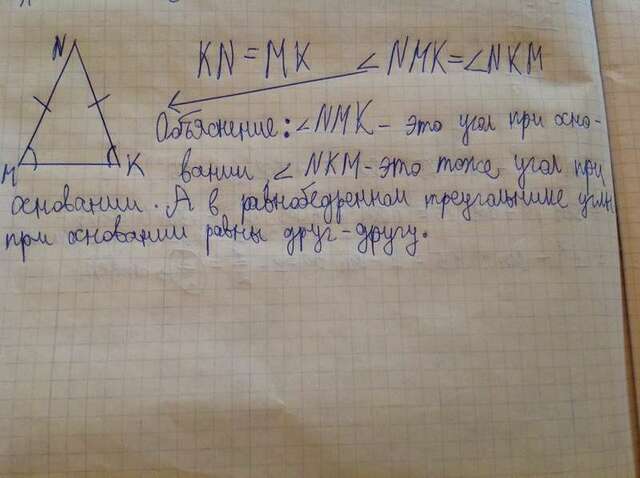 N
KN = MK ∠ NMK = ∠ NKM
Объяснение: ∠ NMK - это угол при осно-
M K вании, ∠ NKM - это тоже угол при
основании. А в равнобедренном треугольнике углы
при основании равны друг-другу.